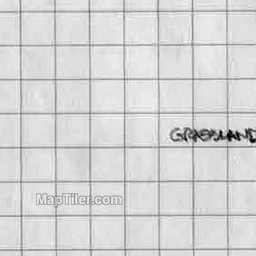 GRASSLAND
MapTiler.com